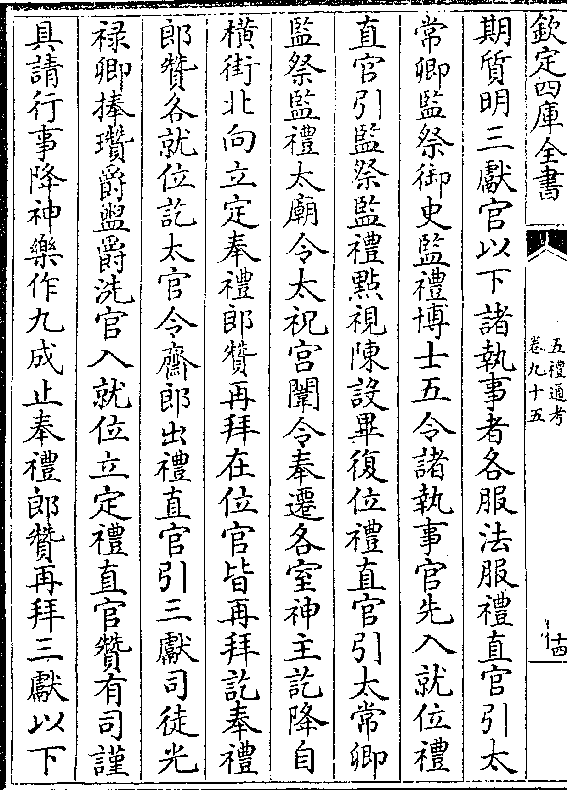 欽定四庫全書
五禮通考
卷九十五
期質明三獻官以下諸執事者各服法服禮直官引太
常卿監祭御史監禮博士五令諸執事官先入就位禮
直官引監祭監禮點視陳設畢復位禮直官引太常卿
監祭監禮太廟令太祝宮闈令奉遷各室神主訖降自
橫街北向立定奉禮郎贊再拜在位官皆再拜訖奉禮
郎贊各就位訖太官令齋郎出禮直官引三獻司徒光
祿卿捧瓚爵盥爵洗官入就位立定禮直官贊有司謹
具請行事降神樂作九成止奉禮郎贊再拜三獻以下